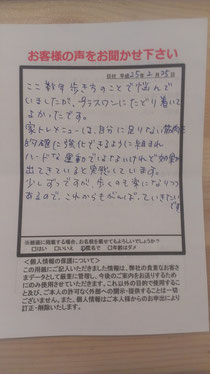 お客様の声をお聞かせ下さい
日付 平成25年2月25日
ここ数年歩き方のことで悩んで
いましたが、プラスワンにたどり着いて
よかったです。
家トレメニューは、自分に足りない筋肉を
的確に強化できるように組まれ
ハードな運動ではないけれど
出てきていると実感しています。
少しずつですが、歩くのも楽になりつつ
あるので、これからもがんばっていきたい
です
※紙面に掲載する場合、お名前を載せてもよろしいでしょうか?
□はい □いいえ 匿名で □年齢はダメ
＜個人情報の保護について＞
この用紙にご記入いただきました情報は、弊社の貴重なお客さ
まデータとして厳重に管理し、今後のご案内をお送りするため
にのみ使用させていただきます。これ以外の目的で使用するこ
と及び、ご本人の許可なく外部への開示・提供することは一切
ございません。また、個人情報はご本人様からのお申出により
訂正・削除いたします。